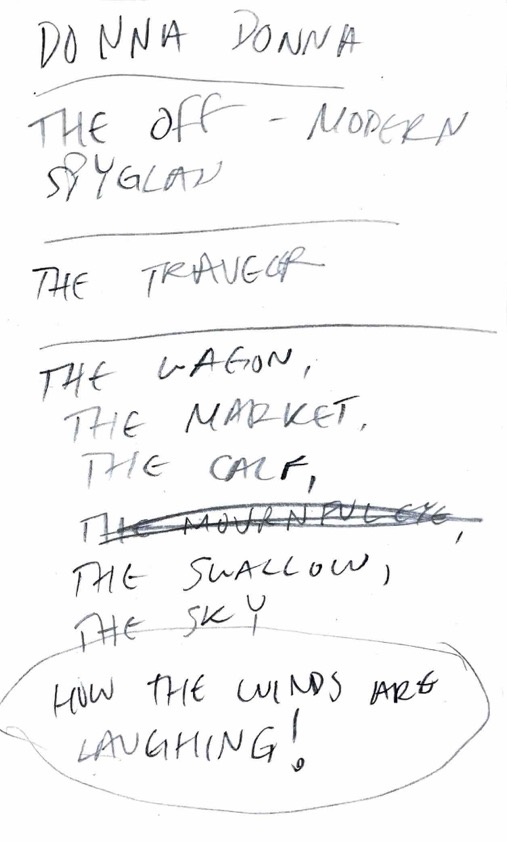 DONNA DONNA
THE OFF - MODERN
SPYGLASS
THE TRAVELER
THE WAGON,
THE MARKET,
THE CALF,
THE MOURNFUL EYE,
THE SWALLOW,
THE SKY
HOW THE WINDS ARE
LAUGHING!